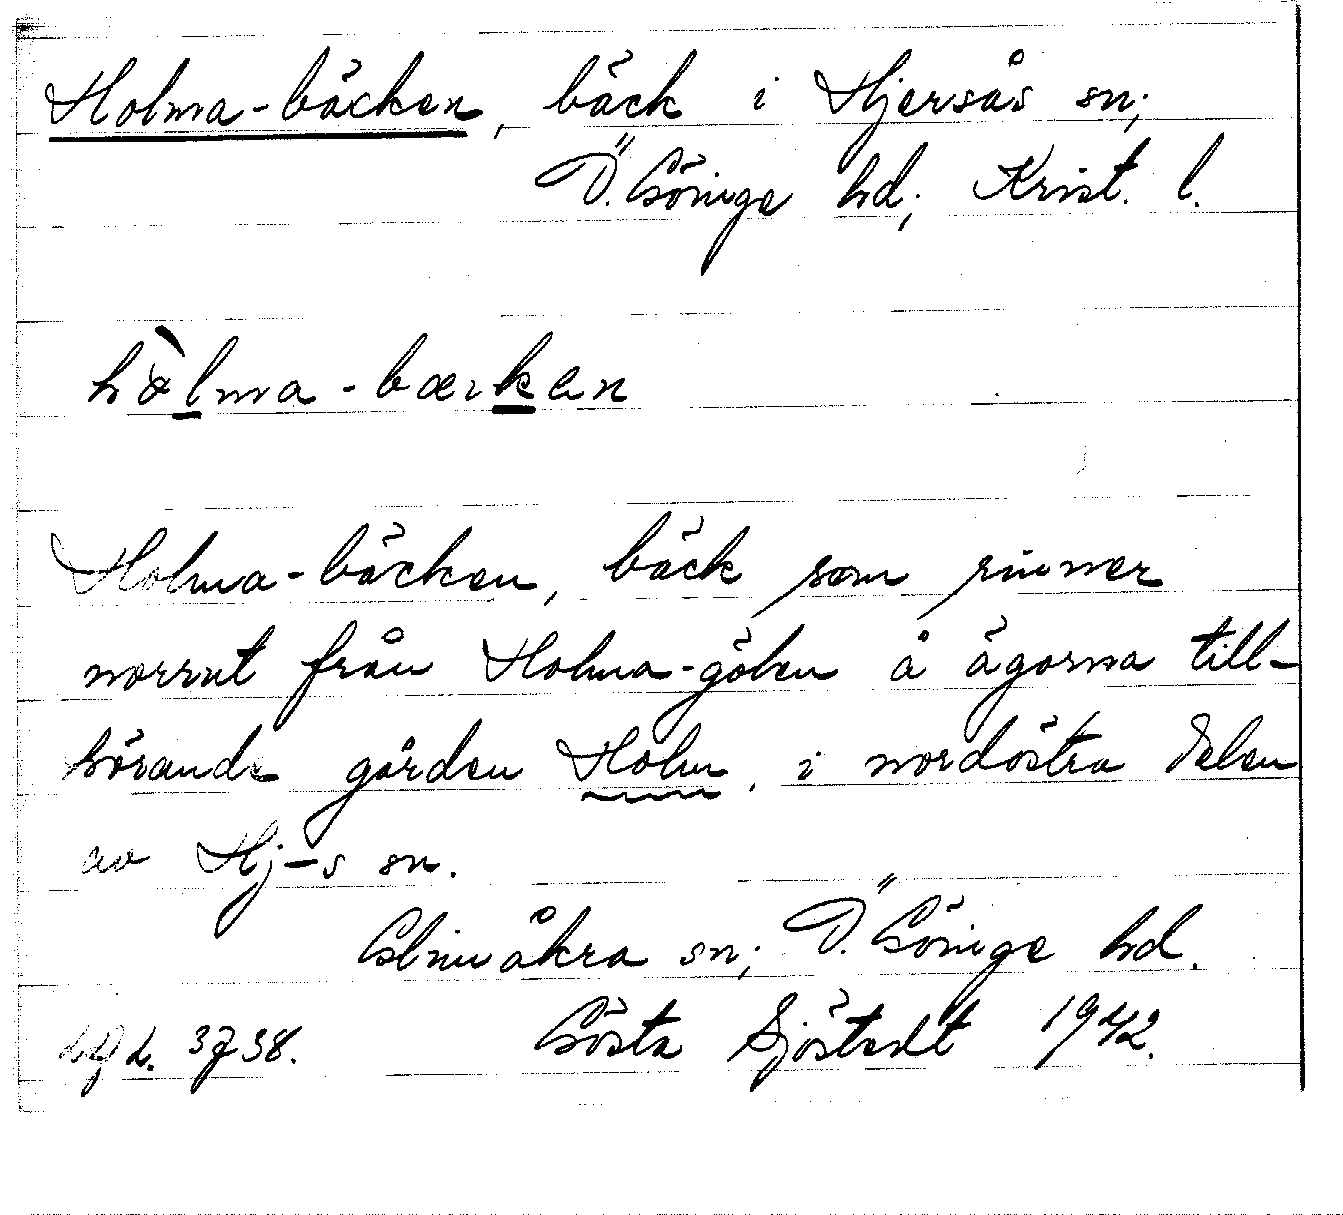 Holma-bäcken, bäck i Hjersås sn;
Ö. Göinge hd; Krist. l.
hòlma-bærken
Holma-bäcken, bäck som rinner
norrut från Holma-gölen å ägorna till-
hörande gården Holm, i nordöstra delen
av Hj-s sn.
Glimåkra sn; Ö. Göinge hd.
Gösta Sjöstedt 1942.
3738.